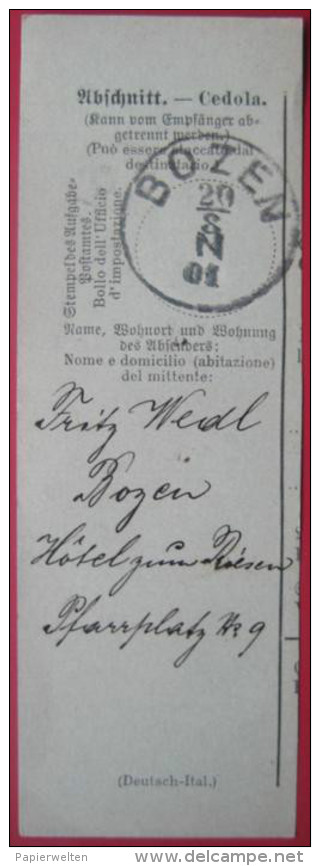 Abschnitt. — Cedola.
(Kann vom Empfänger ab-
getrennt werden.)
(Può essere staccata dal
destinatario.)
Stempel des Aufgabe-
Postamtes.
Bollo dell' Ufficio
d'impostazione.
BOZEN
20
8
01
Name, Wohnort und Wohnung
des Absenders:
Nome e domicilio (abitazione)
del mittente:
Fritz Wedl
Bozen
Hôtel zum Riesen
Pfarrplatz No 9
(Deutsch-Ital.)
Papierwelten
delcampe.net